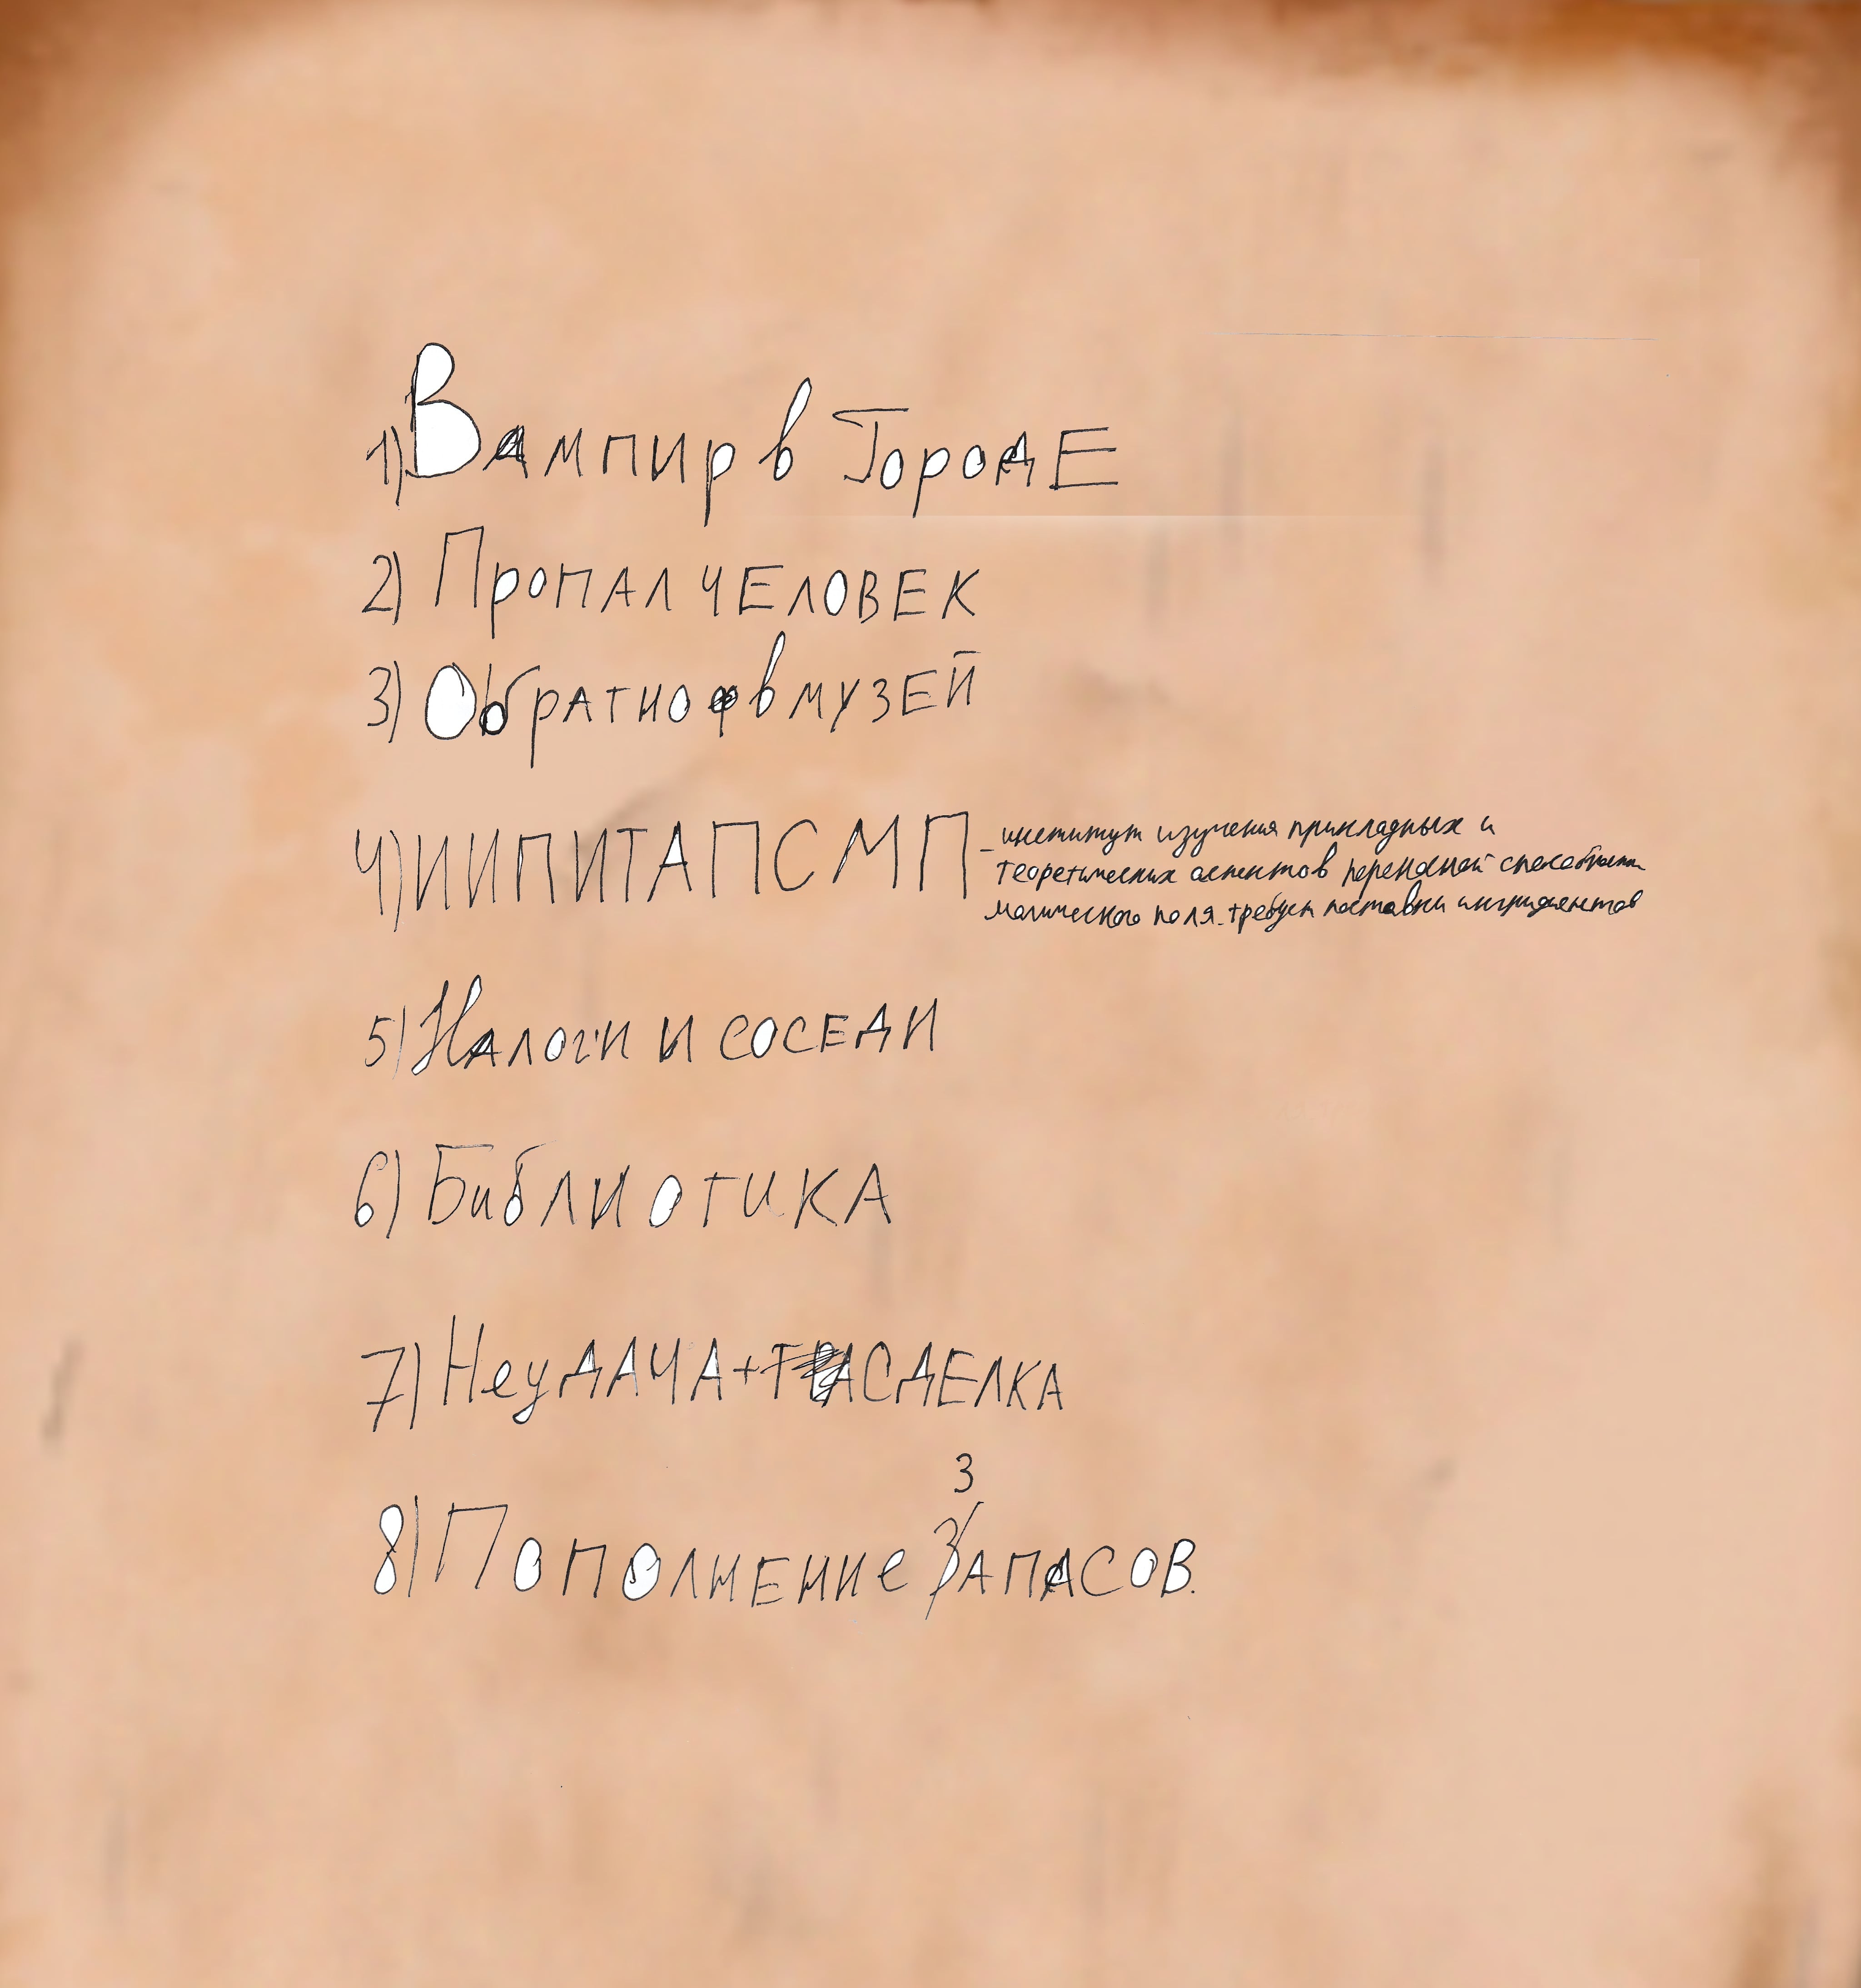 1) Вампир в ГородЕ
2) Пропал человек
3) Обратно в музей
4) ИИПИТАПСМП - институт изучения прикладных и
теоретических аспектов
магического поля. требует поставки ингридиентов
5) Налоги и соседи
6) Библиотика
7) НеудАЧА + СДЕЛКА
3
8) Пополнение Запасов.